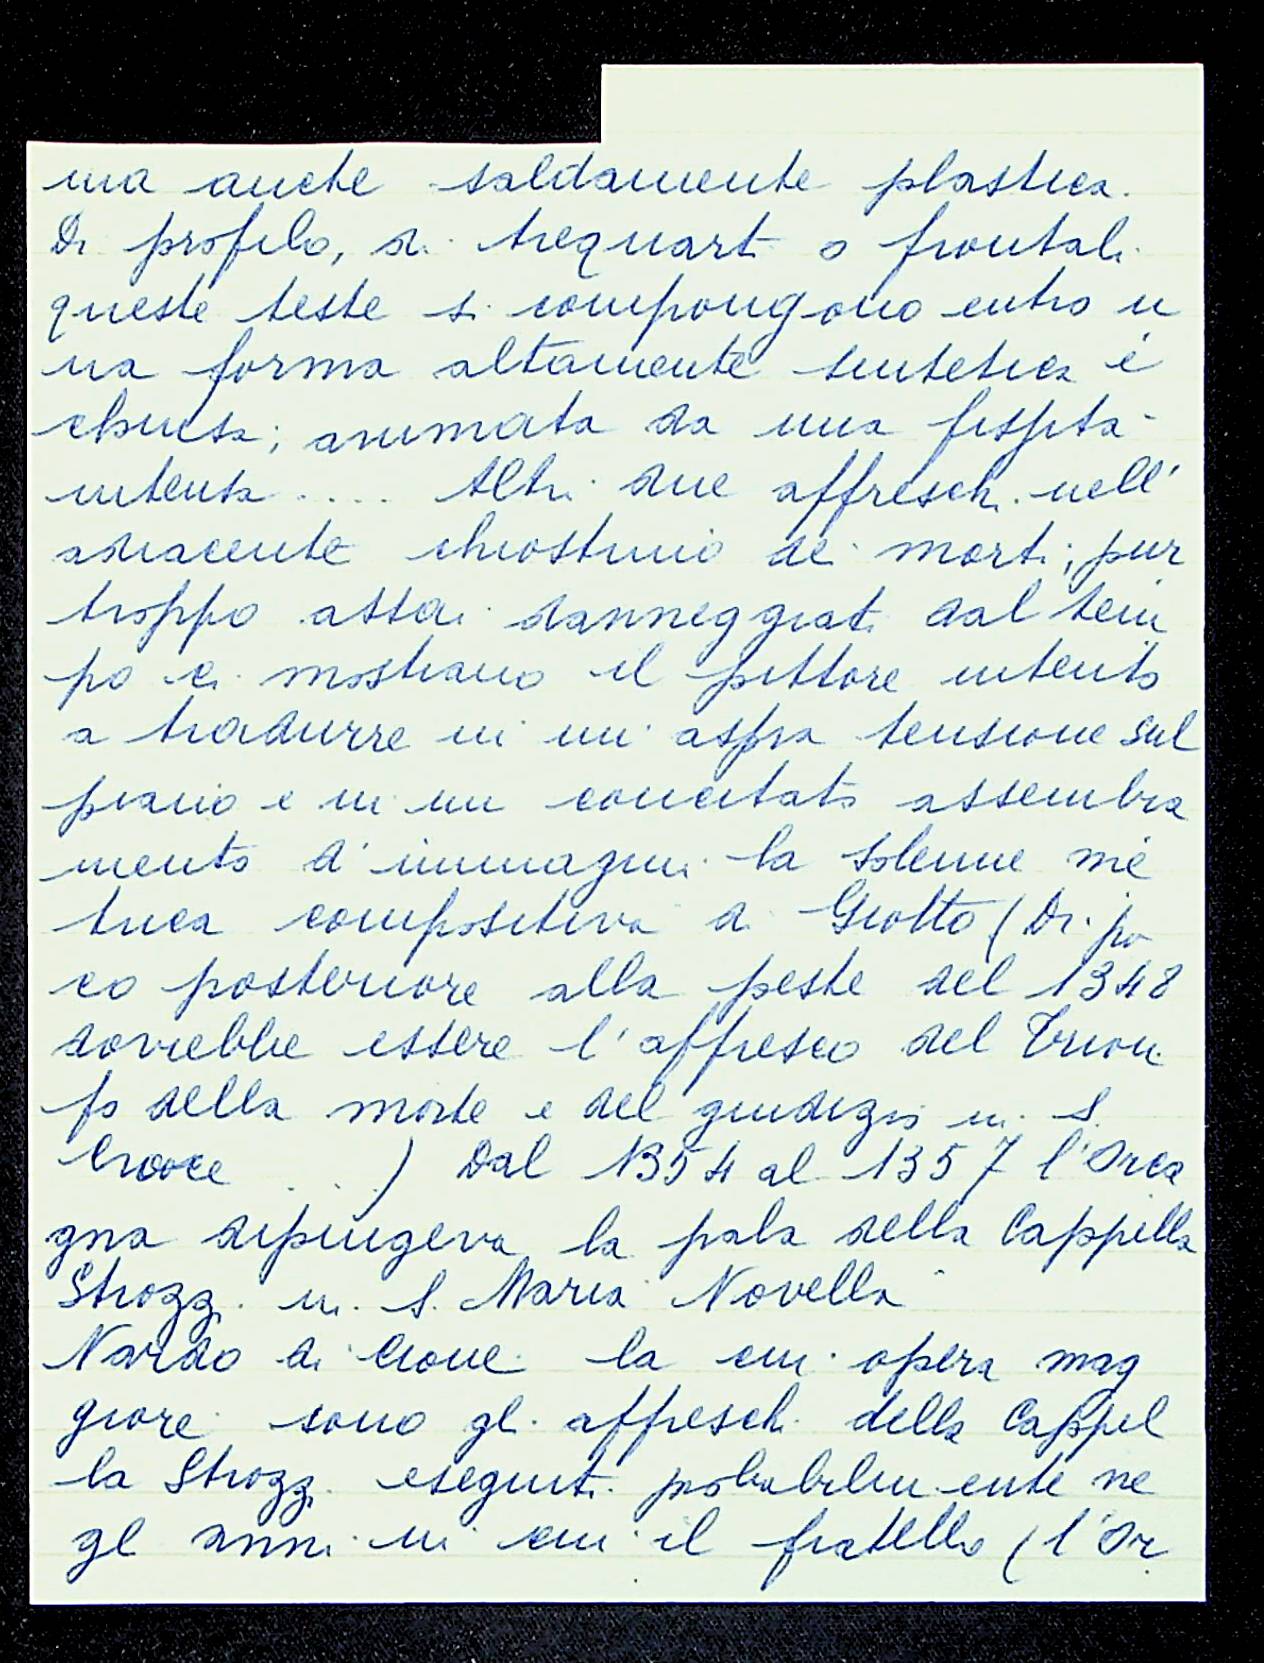 ma anche saldamente plastica.
Di profilo, di trequarti o frontali
queste teste si compongono entro u
na forma altamente sintetica e
chiusa; animata da una fissità
intensa .... Altri due affreschi nell'
adiacente chiostrino dei morti; pur
troppo assai danneggiati dal tem
po ci mostrano il pittore intento
a tradurre in un' aspra tensione sul
piano e in un concitato assembra
mento d'immagini la solenne me
trica compositiva di Giotto (Di po
co posteriore alla peste del 1348
dovrebbe essere l'affresco del Trion
fo della morte e del giudizio in S.
Croce ...) Dal 1354 al 1357 l'Orca
gna dipingeva la pala della Cappella
Strozzi in S. Maria Novella
Nardo di Cione la cui opera mag
giore sono gli affreschi della Cappel
la Strozzi eseguiti probabilmente ne
gli anni in cui il fratello (l'Or